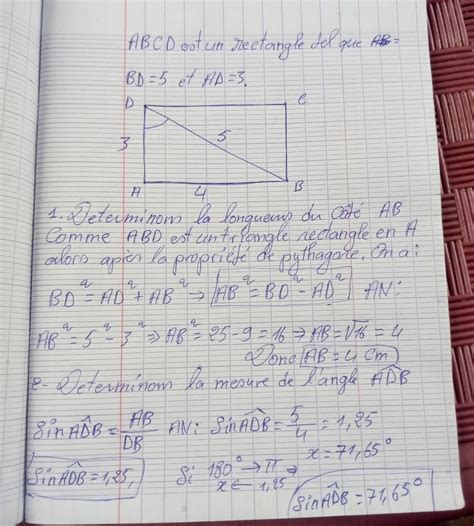 ABCD est un rectangle tel que AB=
BD=5 et AD=3.
D C
3 5
A 4 B
1. Determinons la longueurs du Côté AB
Comme ABD est un triangle rectangle en A
alors après la propriété de pythagore. On a:
BD² = AD² + AB² → AB² = BD² - AD² AN:
AB² = 5² - 3² ⇒ AB² = 25 - 9 = 16 ⇒ AB = √16 = 4
Donc AB = 4 Cm
2- Determinons la mesure de l'angle ADB
Sin ADB = AB/DB AN: Sin ADB = 5/4 = 1,25
x = 71,65°
Sin ADB = 1,25, Si 180° → π
x ← 1,25
Sin ADB = 71,65°